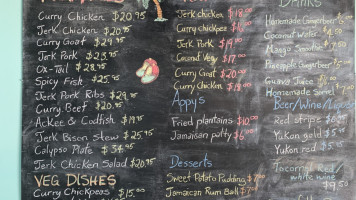 Curry Chicken $20.95
Jerk Chicken $20.95
Curry Goat $24.95
Jerk Pork $23.95
Ox-Tail $28.95
Spicy Fish $25.95
Jerk Pork Ribs $29.95
Curry Beef $20.95
Ackee & Codfish $19.95
Jerk Bison Stew $25.95
Calypso Plate $34.95
Jerk Chicken Salad $20.95
VEG DISHES
Curry Chickpeas $15.00
Jerk chicken $18.00
Curry chickpea
Jerk Pork $19.00
Coconut Veg $17.00
Curry Goat $20.00
Curry Chicken
Appys
Fried plantains $10.00
Jamaican patty $6.00
Desserts
Sweet Potato Pudding
Jamaican Rum Ball
DRINKS
Homemade Gingerbeer
Coconut Water
Mango Smoothie
Pineapple Gingerbeer
Guava Juice
Homemade Sorrel
Beer/Wine/Liquor
Red stripe
Yukon gold
Yukon red
white wine
$9.50